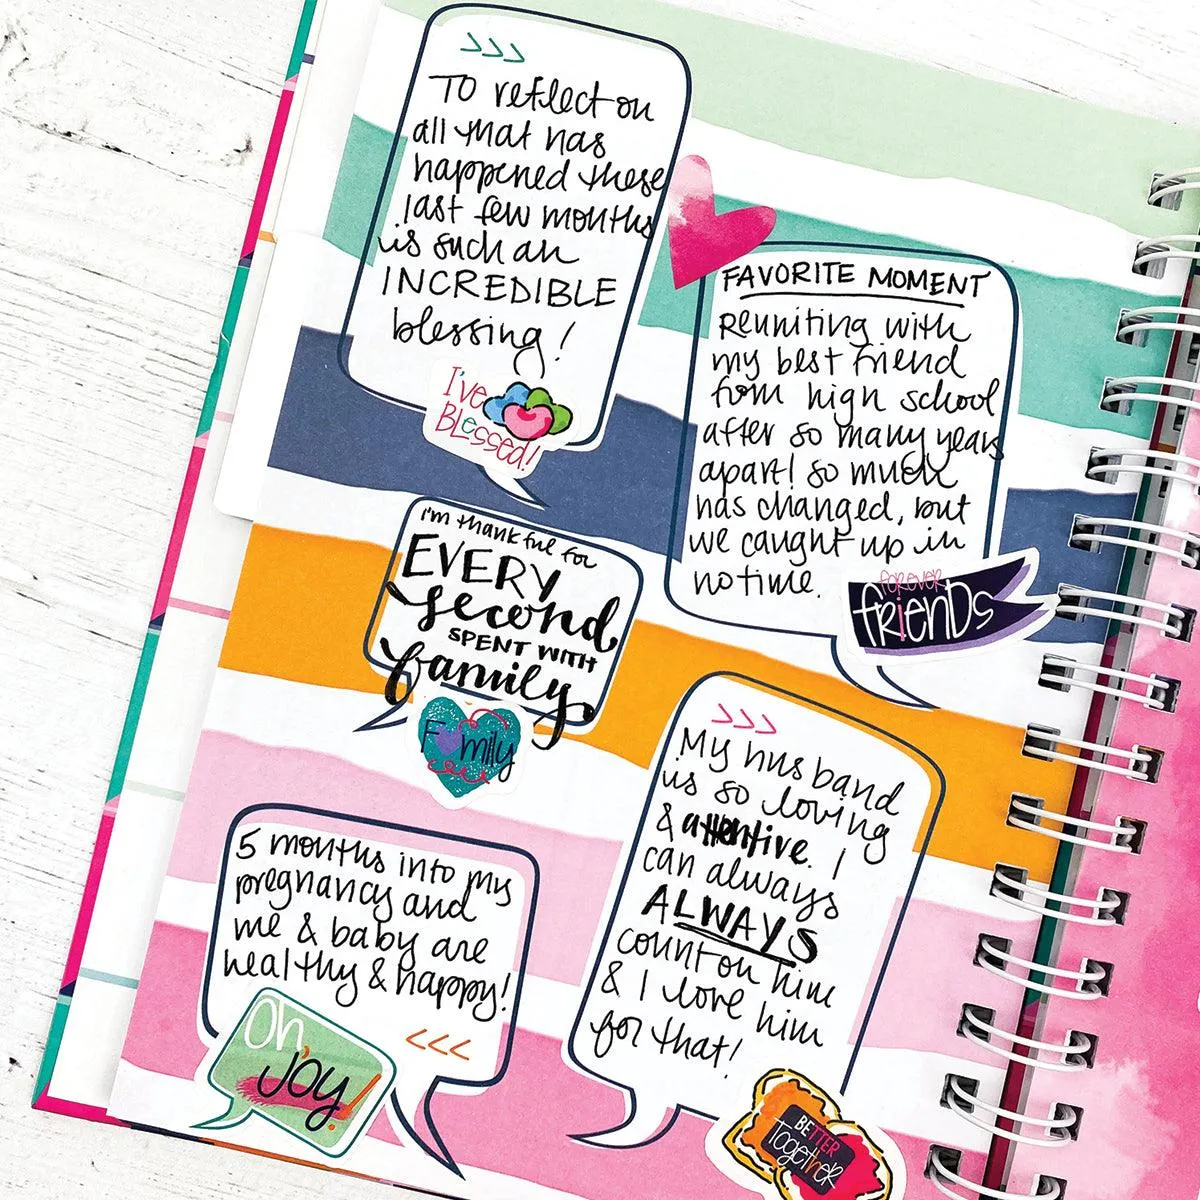 >>>
TO reflect on
all that has
happened these
last few months
is such an
INCREDIBLE
blessing!
I've
BLessed!
FAVORITE MOMENT
Reuniting with
my best friend
from high school
after so many years
apart! so much
has changed, but
we caught up in
no time.
FOREVER
friENDS
I'm thankful for
EVERY
second
SPENT WITH
family.
Family
>>>
My husband
is so loving
& attentive. I
can always
ALWAYS
count on him
& I love him
for that!
BETTER
Together
5 months into my
pregnancy and
me & baby are
healthy & happy!
<<<
Oh,
joy!